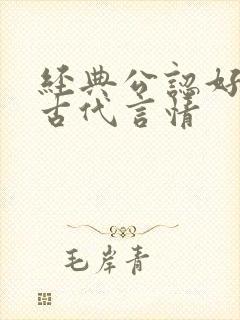 經典公認好
古代言情
毛岸青